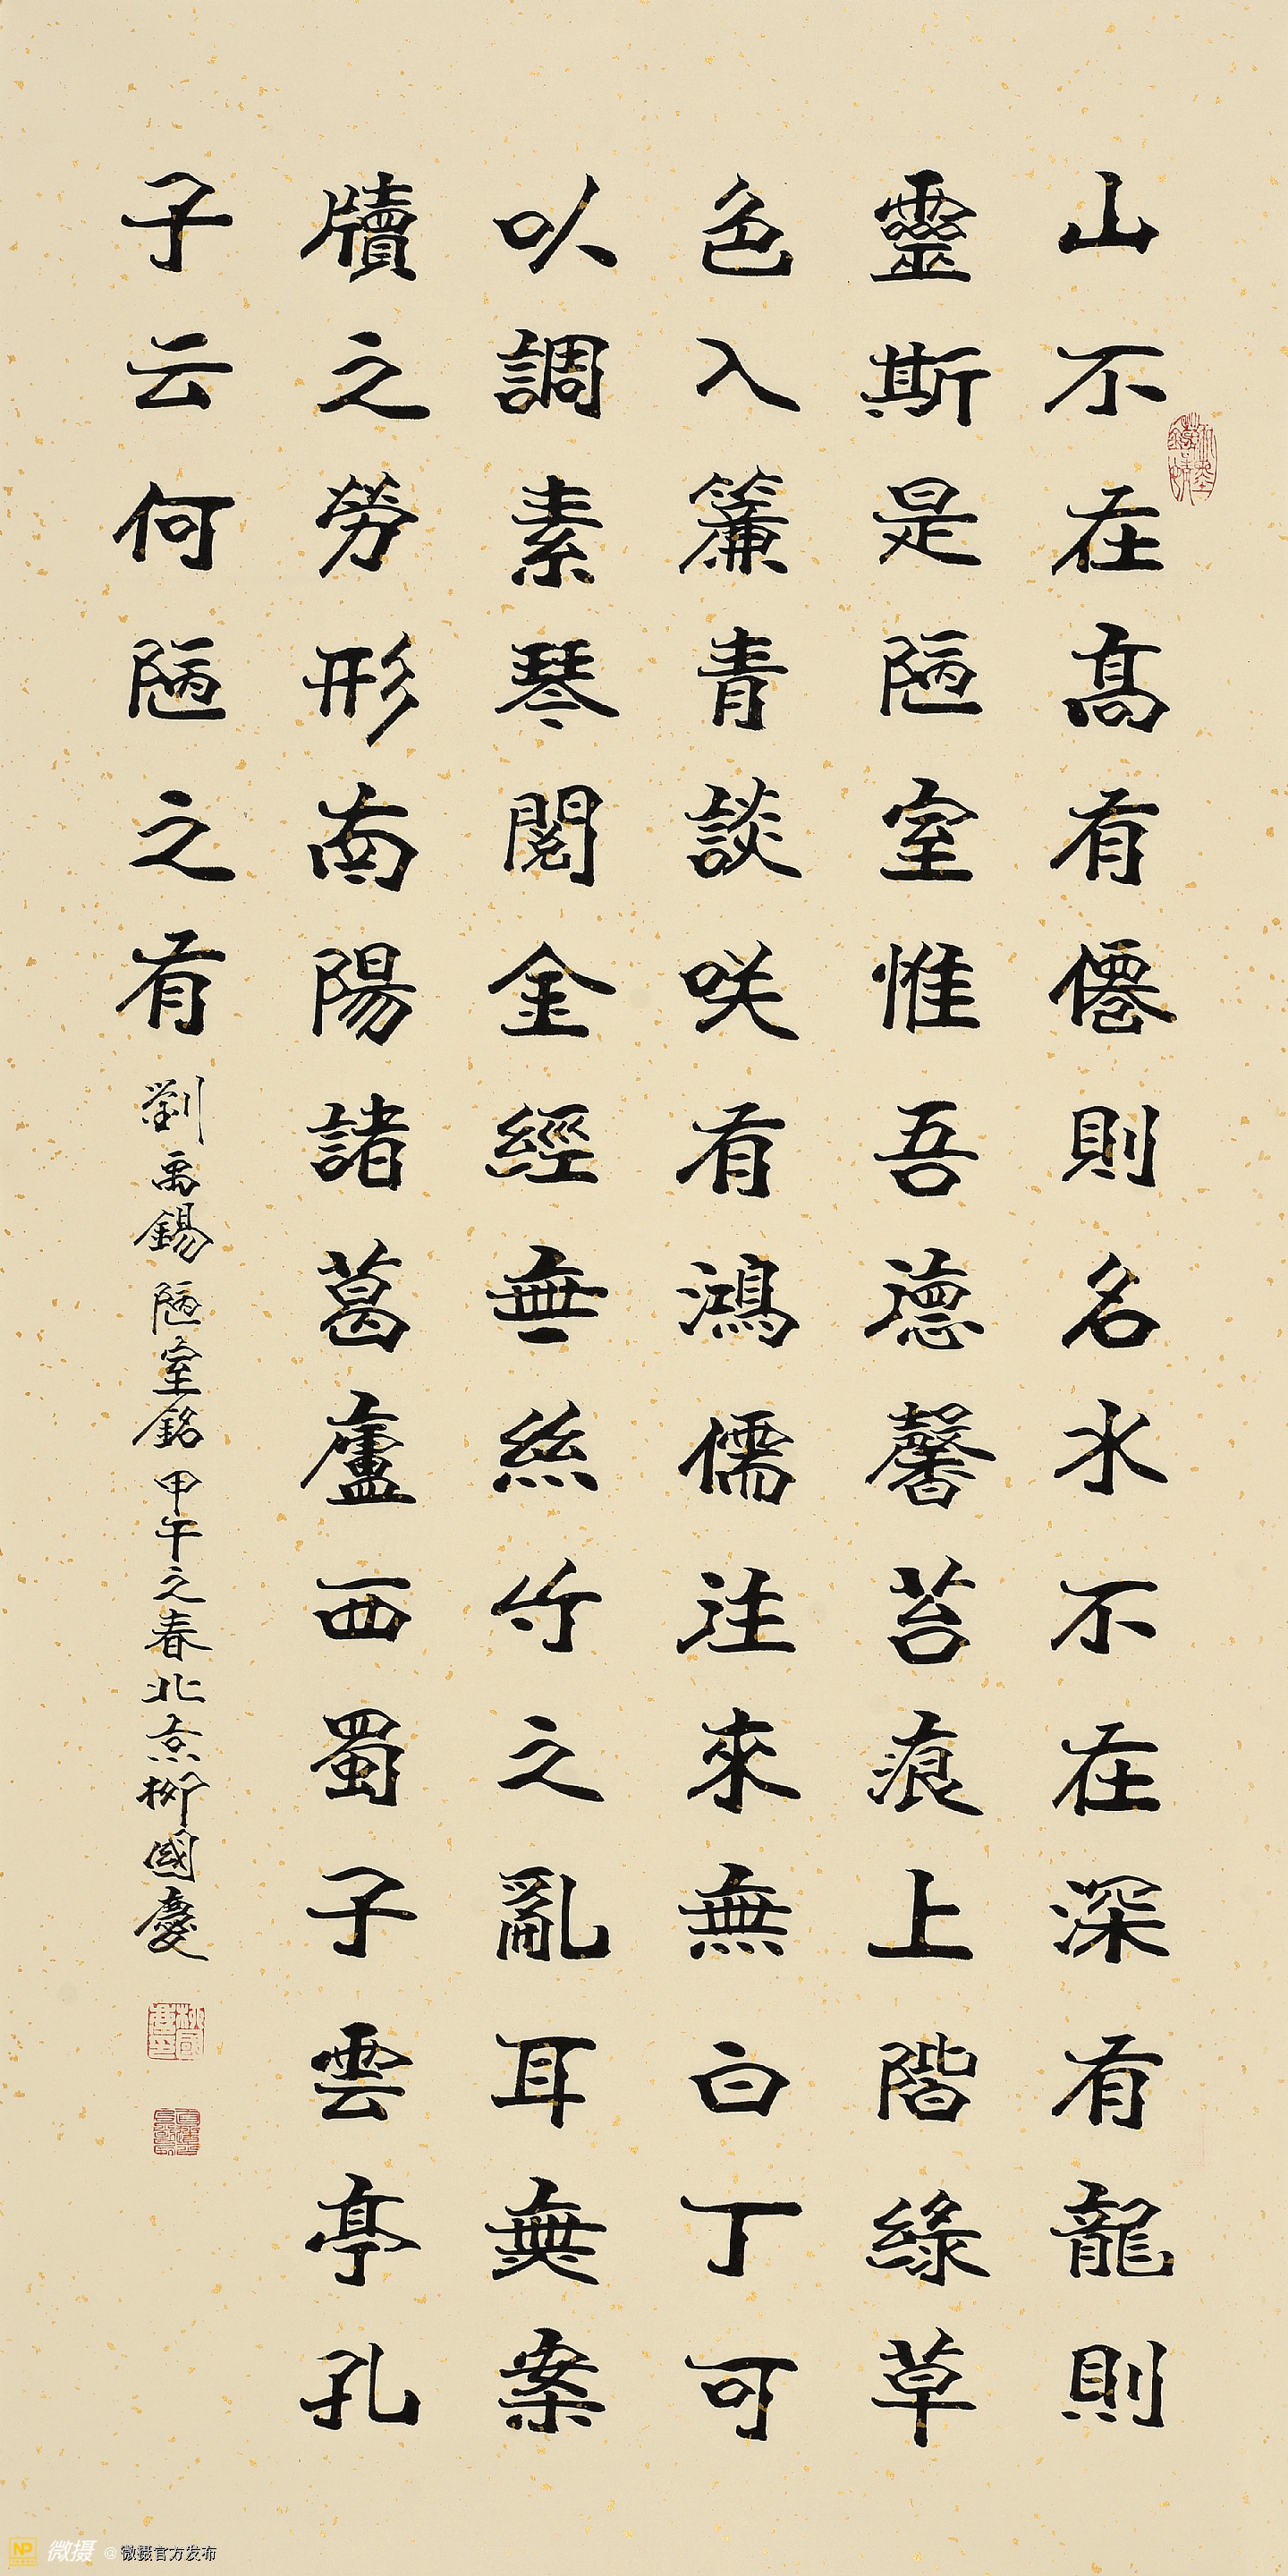 山不在高有僊則名水不在深有龍則
靈斯是陋室惟吾德馨苔痕上階緑草
色入簾青談咲有鴻儒往來無白丁可
以調素琴閱金經無絲竹之亂耳無案
牘之勞形南陽諸葛廬西蜀子雲亭孔
子云何陋之有
劉禹錫陋室銘甲午之春北京柳國慶
NP 微摄 @微摄官方发布